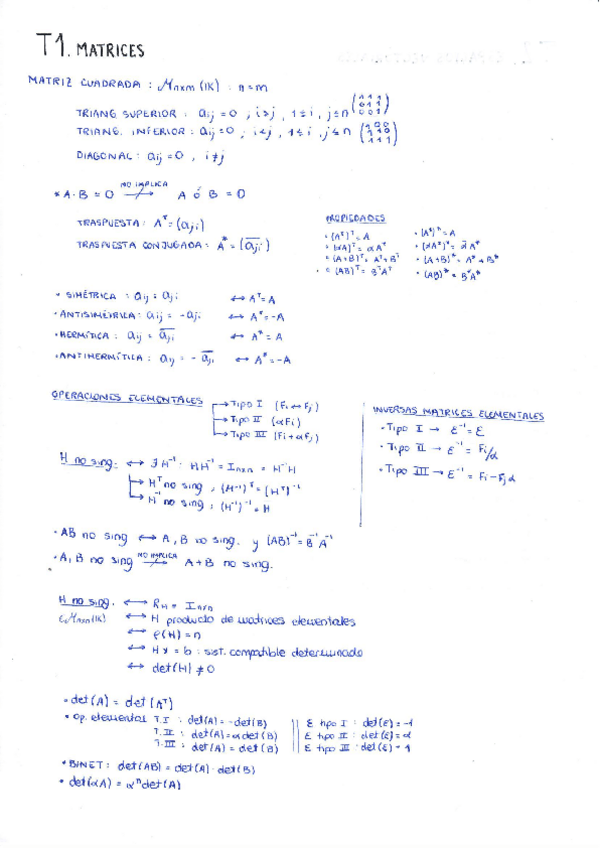 T1. MATRICES
MATRIZ CUADRADA : Mnxm (IK) : n=m
TRIANG SUPERIOR : aij = 0 ; i>j , 1≤i , j≤n (1 1 1 / 0 1 1 / 0 0 1)
TRIANG. INFERIOR : aij = 0 ; i<j , 1≤i , j≤n (1 0 0 / 1 1 0 / 1 1 1)
DIAGONAL : aij = 0 , i≠j
* A·B = 0 NO IMPLICA A ó B = 0
TRASPUESTA : Aᵀ = (aji)
TRASPUESTA CONJUGADA : A* = (\overline{aji})
PROPIEDADES
• (Aᵀ)ᵀ = A
• (αA)ᵀ = αAᵀ
• (A+B)ᵀ = Aᵀ+Bᵀ
• (AB)ᵀ = BᵀAᵀ
• (A*)* = A
• (αA*)* = \overline{α}A*
• (A+B)* = A*+B*
• (AB)* = B*A*
• SIMÉTRICA : aij = aji ↔ Aᵀ = A
• ANTISIMÉTRICA : aij = -aji ↔ Aᵀ = -A
• HERMÍTICA : aij = \overline{aji} ↔ A* = A
• ANTIHERMÍTICA : aij = -\overline{aji} ↔ A* = -A
OPERACIONES ELEMENTALES
→ TIPO I (Fi ↔ Fj)
→ TIPO II (αFi)
→ TIPO III (Fi+αFj)
INVERSAS MATRICES ELEMENTALES
• TIPO I → E⁻¹ = E
• TIPO II → E⁻¹ = Fi/α
• TIPO III → E⁻¹ = Fi-Fjα
H no sing. ↔ ∃ H⁻¹ : HH⁻¹ = Inxn = H⁻¹H
→ Hᵀ no sing ; (H⁻¹)ᵀ = (Hᵀ)⁻¹
→ H⁻¹ no sing ; (H⁻¹)⁻¹ = H
• AB no sing ↔ A, B no sing. y (AB)⁻¹ = B⁻¹A⁻¹
• A, B no sing NO IMPLICA A+B no sing.
H no sing. ↔ RH = Inxn
∈Mnxn(IK) ↔ H producto de matrices elementales
↔ ρ(H) = n
↔ Hx = b : sist. compatible determinado
↔ det(H) ≠ 0
• det(A) = det(Aᵀ)
• Op. elemental T.I : det(A) = -det(B) || E tipo I : det(E) = -1
T.II : det(A) = α det(B) || E tipo II : det(E) = α
T.III : det(A) = det(B) || E tipo III : det(E) = 1
• BINET : det(AB) = det(A)·det(B)
• det(αA) = αⁿdet(A)